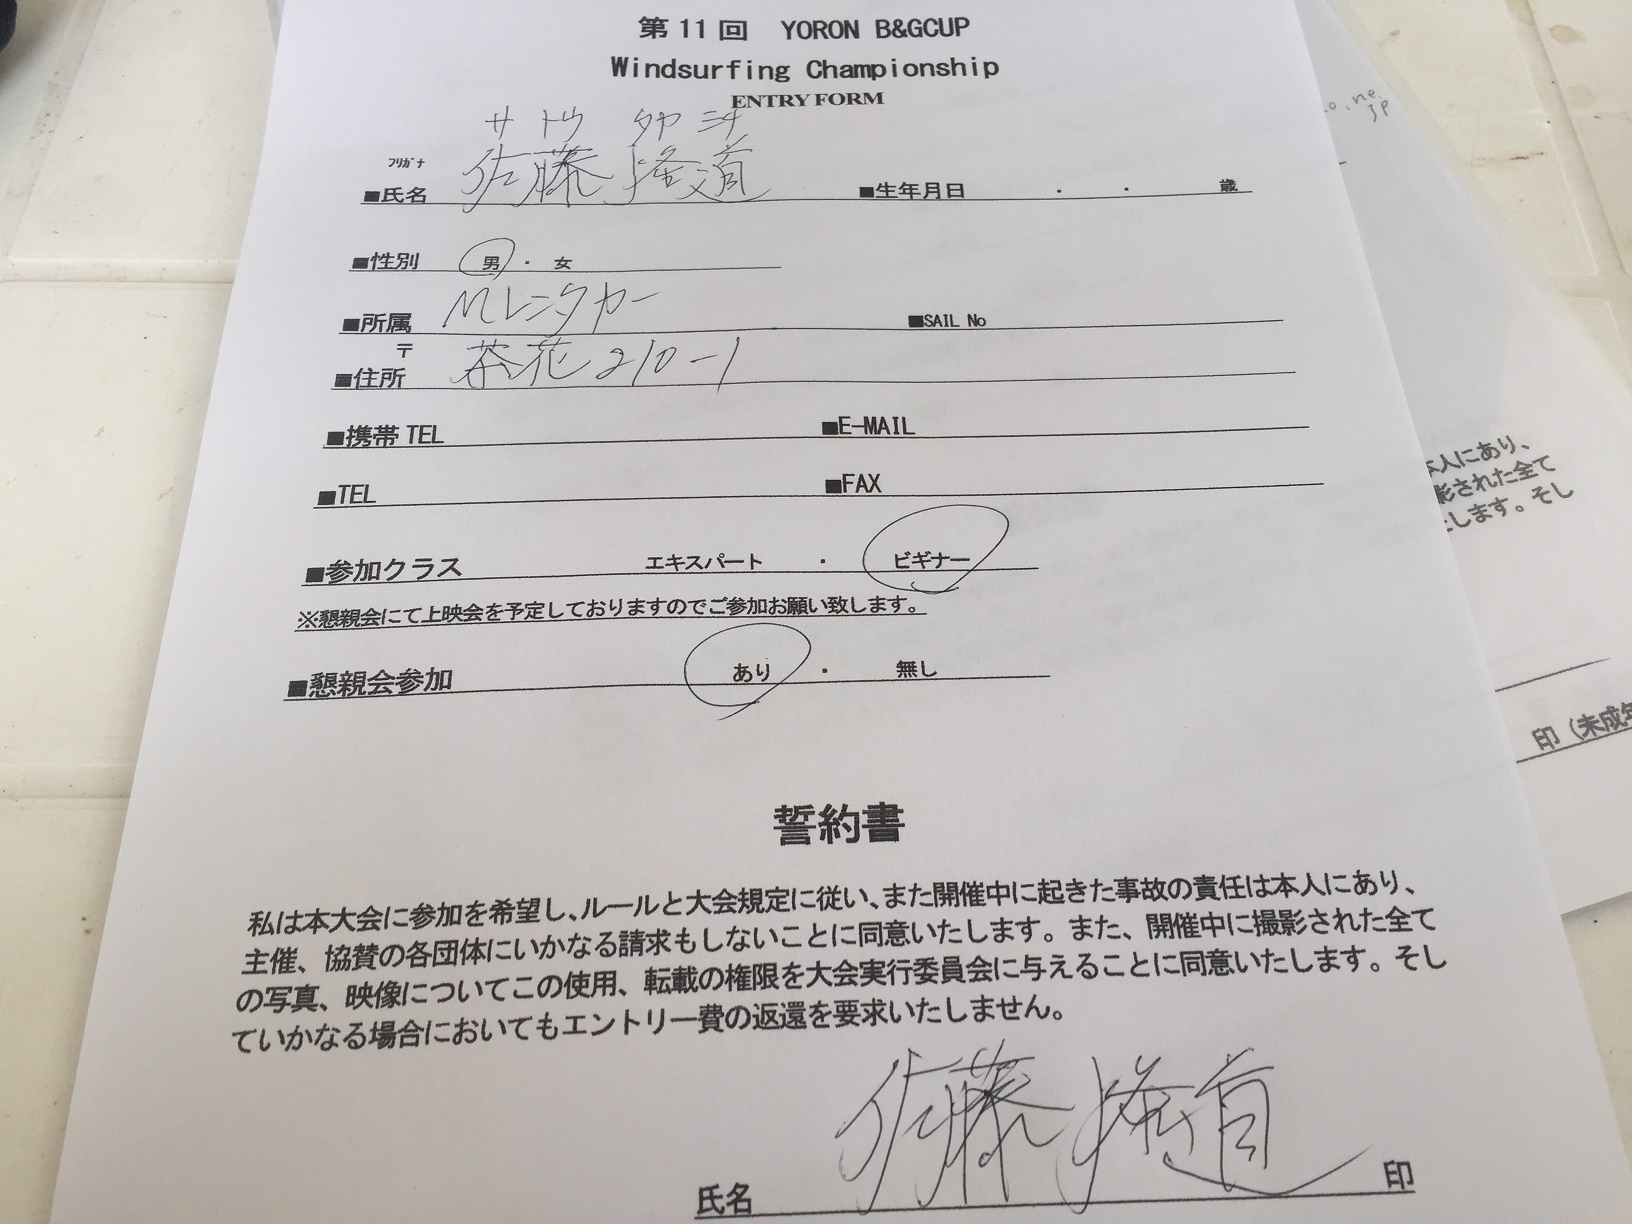 第11回 YORON B&GCUP
Windsurfing Championship
ENTRY FORM
サトウ タカミチ
フリガナ
■氏名 佐藤 隆道 ■生年月日 ・ ・ 歳
■性別 男 ・ 女
■所属 Mレンタカー ■SAIL No
〒
■住所 茶花210-1
■携帯TEL ■E-MAIL
■TEL ■FAX
■参加クラス エキスパート ・ ビギナー
※懇親会にて上映会を予定しておりますのでご参加お願い致します。
■懇親会参加 あり ・ 無し
誓約書
私は本大会に参加を希望し、ルールと大会規定に従い、また開催中に起きた事故の責任は本人にあり、
主催、協賛の各団体にいかなる請求もしないことに同意いたします。また、開催中に撮影された全て
の写真、映像についてこの使用、転載の権限を大会実行委員会に与えることに同意いたします。そし
ていかなる場合においてもエントリー費の返還を要求いたしません。
氏名 佐藤 隆道 印
.ne.
jp
本人にあり、
影された全て
します。そし
印(未成年